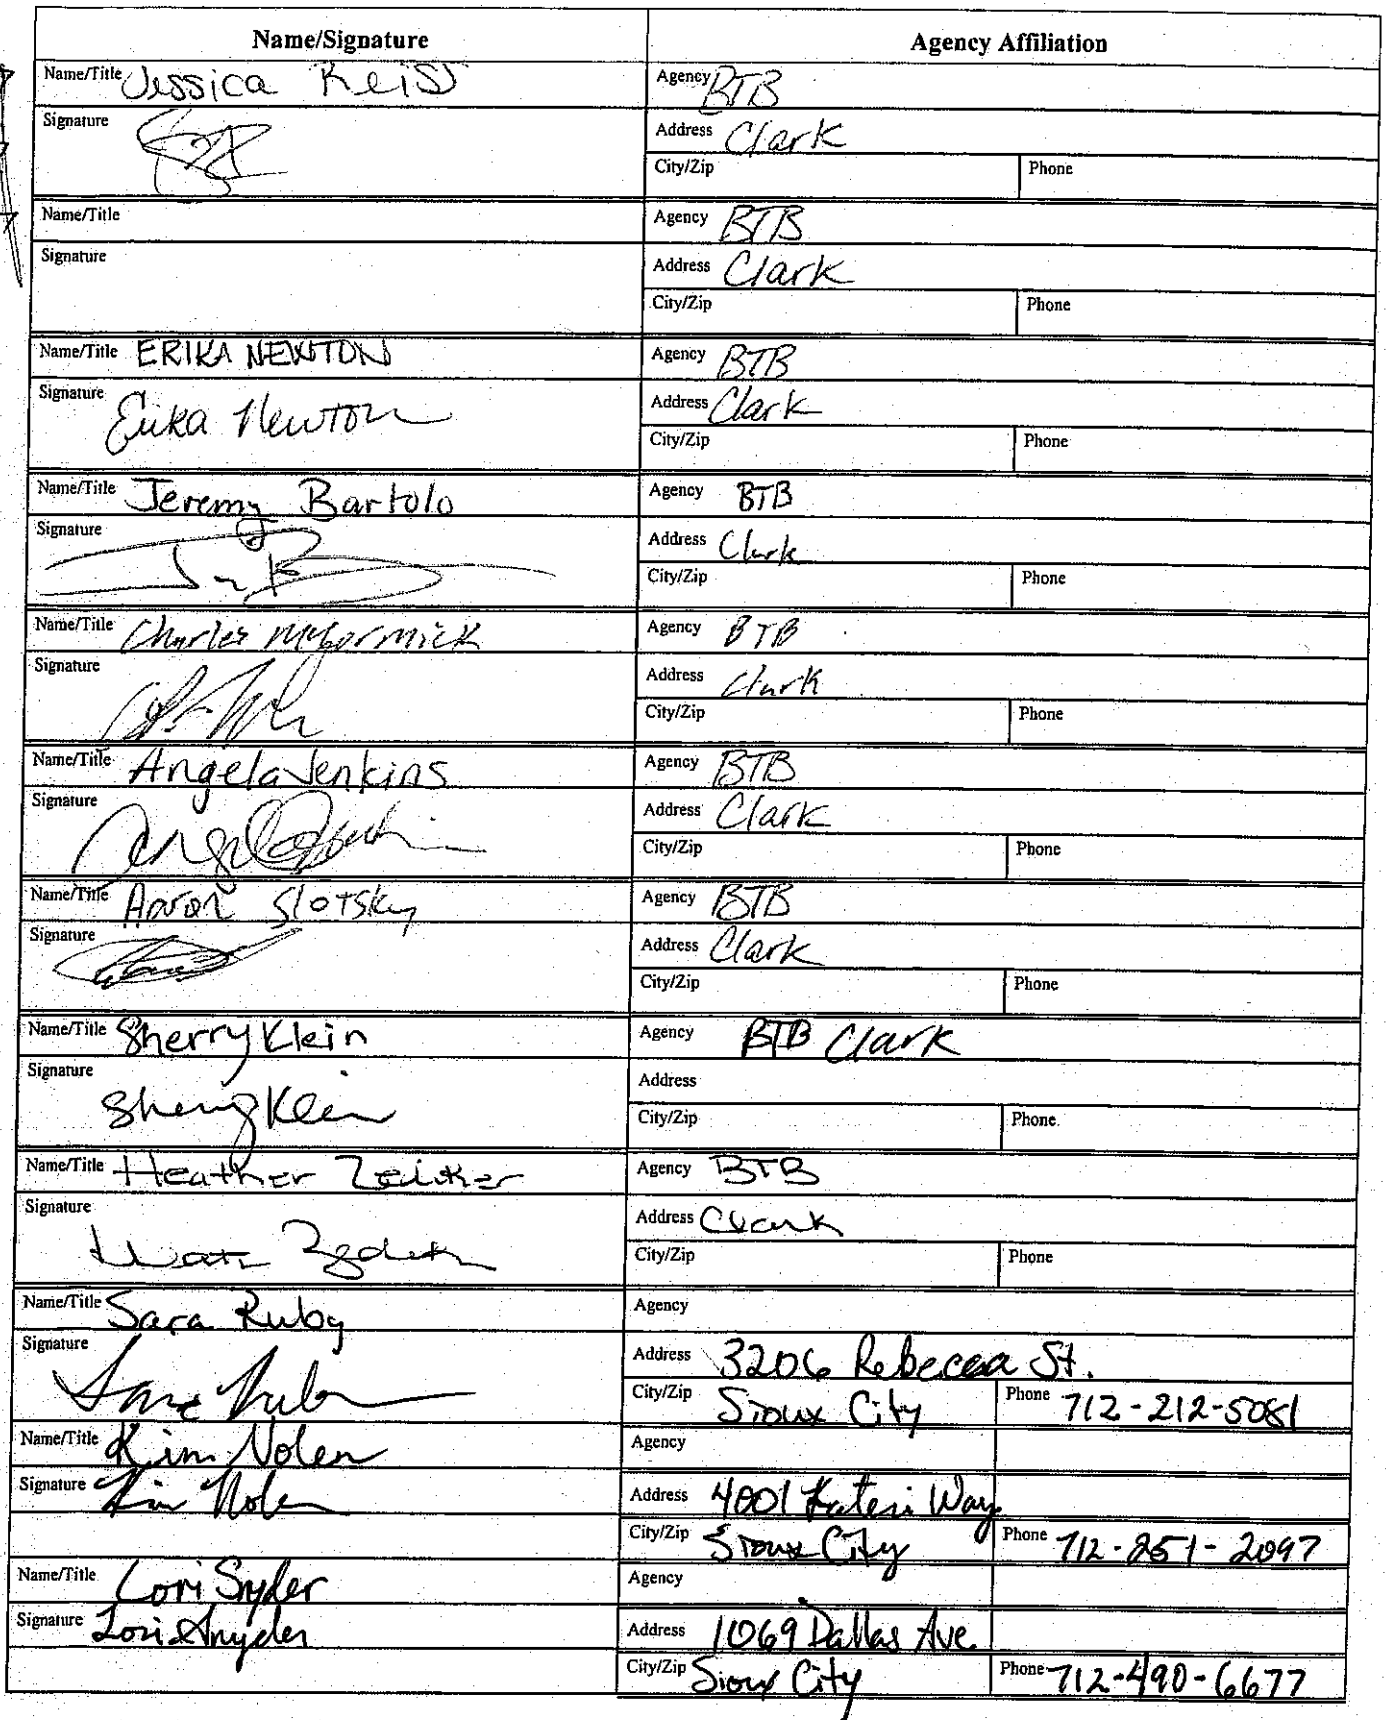 Name/Signature Agency Affiliation
Name/Title Jessica Reist Agency BTB
Signature Address Clark
City/Zip Phone
Name/Title Agency BTB
Signature Address Clark
City/Zip Phone
Name/Title ERIKA NEWTON Agency BTB
Signature Erika Newton Address Clark
City/Zip Phone
Name/Title Jeremy Bartolo Agency BTB
Signature Address Clark
City/Zip Phone
Name/Title Charles McCormick Agency BTB
Signature Address Clark
City/Zip Phone
Name/Title Angela Jenkins Agency BTB
Signature Address Clark
City/Zip Phone
Name/Title Aaron Slotsky Agency BTB
Signature Address Clark
City/Zip Phone
Name/Title Sherry Klein Agency BTB Clark
Signature Sherry Klein Address
City/Zip Phone
Name/Title Heather Agency BTB
Signature Address Clark
City/Zip Phone
Name/Title Sara Ruby Agency
Signature Address 3206 Rebecca St.
City/Zip Sioux City Phone 712-212-5081
Name/Title Kim Nolen Agency
Signature Kim Nolen Address 4001 Kateri Way
City/Zip Sioux City Phone 712-251-2097
Name/Title Lori Snyder Agency
Signature Lori Snyder Address 1069 Dallas Ave
City/Zip Sioux City Phone 712-490-6677